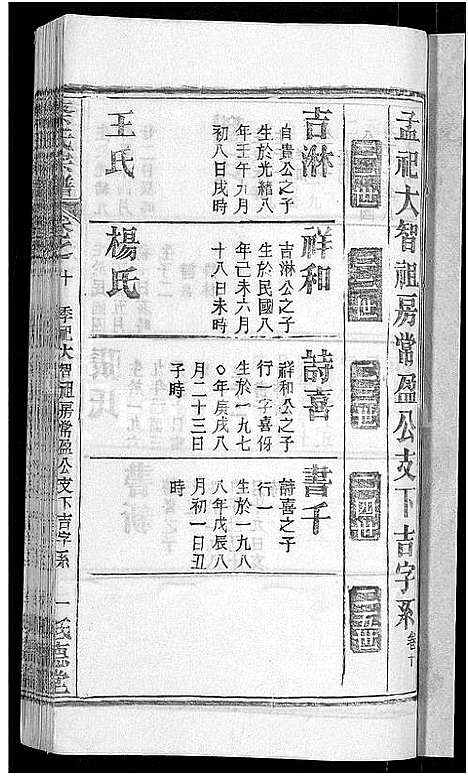 孟祀大智祖房常盈公支下吉字系 卷十
吉淋
自貴公之子
生於光緒八
年壬午九月
初八日戌時
王氏
祥和
吉淋公之子
生於民國八
年己未六月
十八日未時
楊氏
詩喜
祥和公之子
行一字喜伢
生於一九七
〇年庚戌八
月二十三日
子時
書千
詩喜之子
行一
生於一九八
八年戊辰八
月初一日丑
時
氏宗譜
卷之十
季祀大智祖房常盈公支下吉字系
一